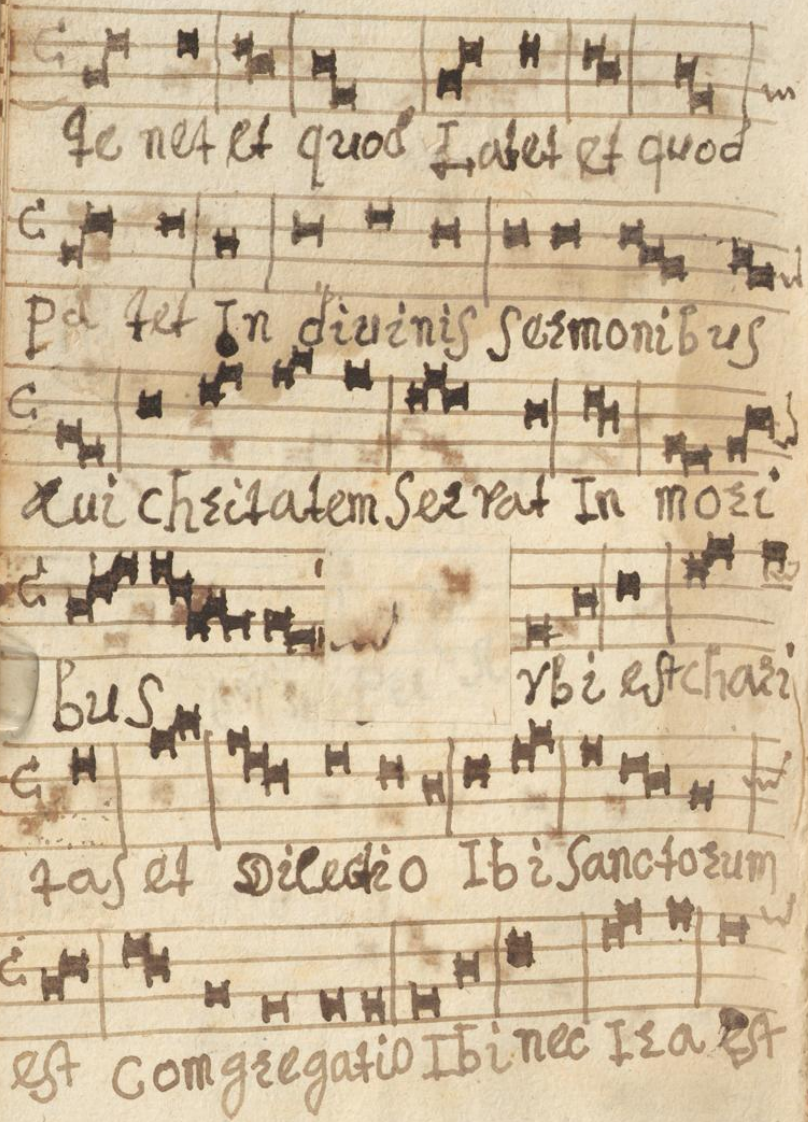 te net et quod Latet et quod
Pa tet In diuinis Sermonibus
Qui chritatem Ser vat In mori
bus vbi est chari
tas et Dilectio Ibi Sanctorum
est Comgregatio Ibi nec Ira est